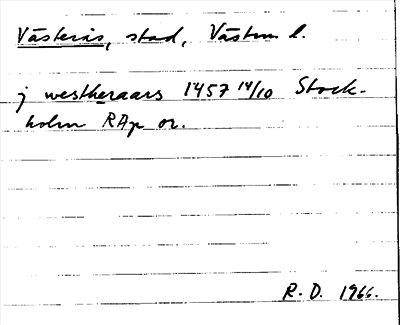 Västerås, stad, Västm l.
j westheraars 1457 14/10 Stock-
holm RAp or.
R. D. 1966.